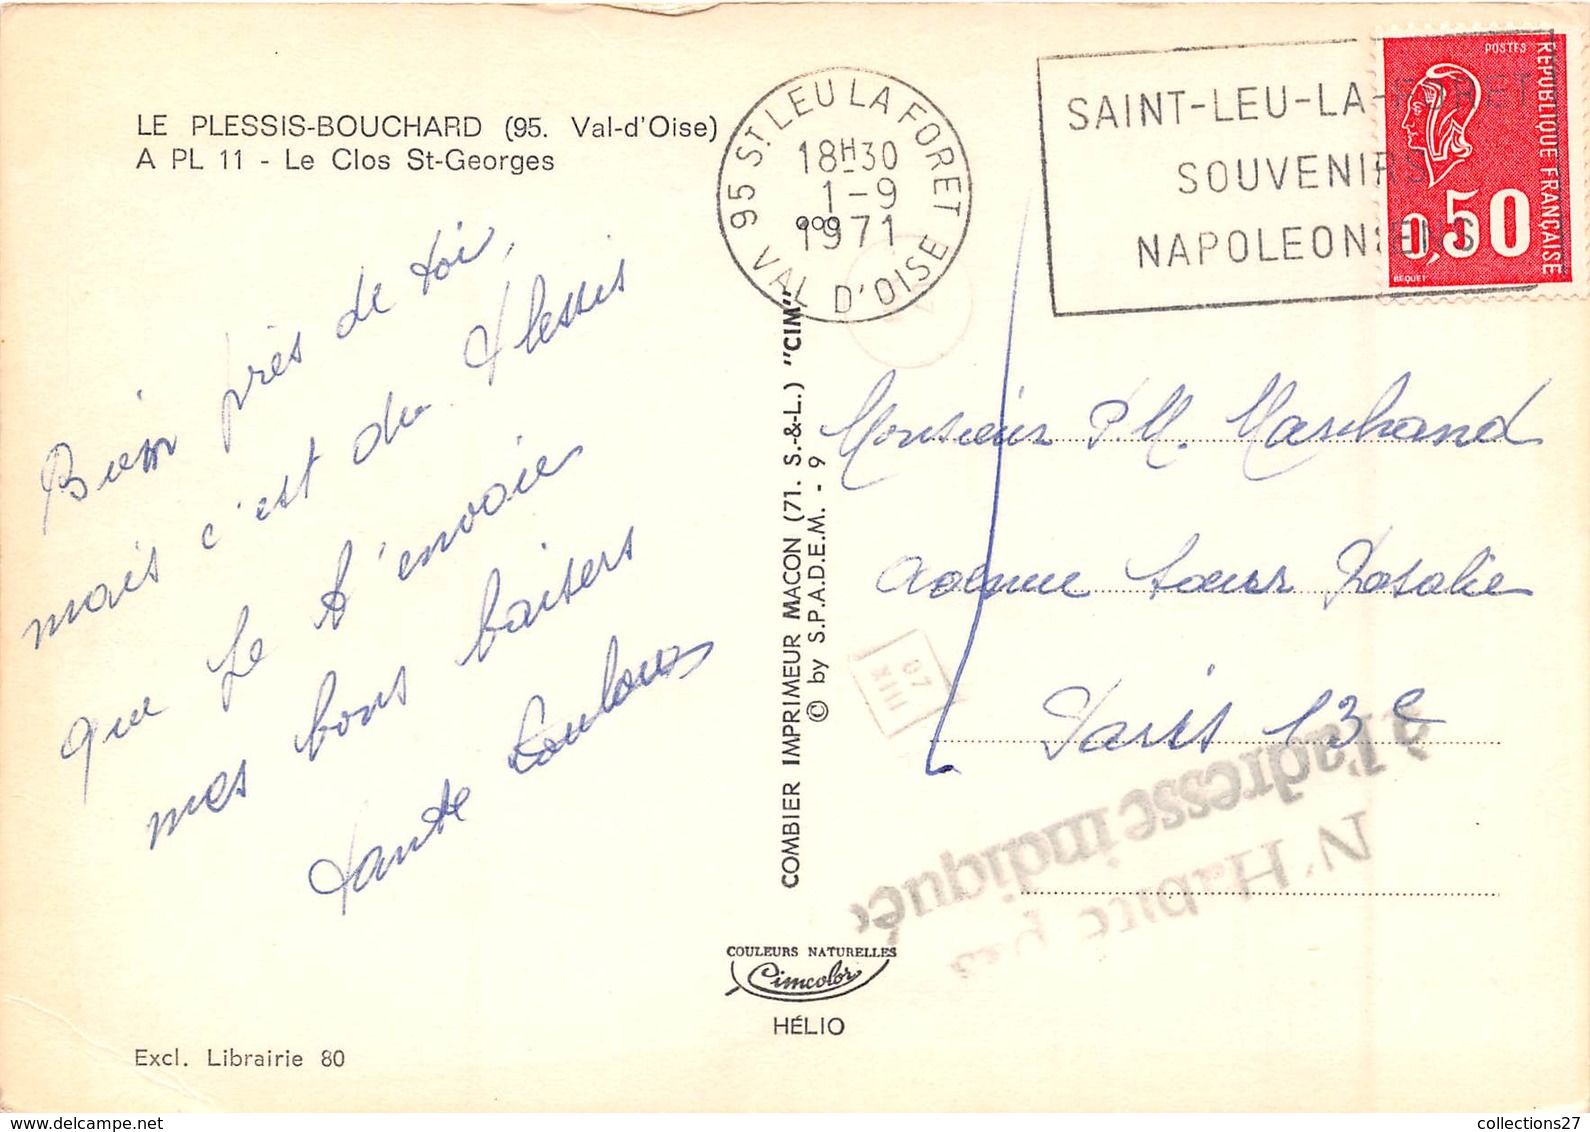 LE PLESSIS-BOUCHARD (95. Val-d'Oise)
A PL 11 - Le Clos St-Georges
Bien près de toi,
mais c'est du Plessis
que je t'envoie
mes bons baisers
Tante Loulou
Excl. Librairie 80
95 St LEU LA FORET
18H30
1-9
1971
VAL D'OISE
SAINT-LEU-LA-FORET
SOUVENIRS
NAPOLEONIENS
POSTES
REPUBLIQUE FRANÇAISE
0,50
BEQUET
COMBIER IMPRIMEUR MACON (71. S.-&-L.) "CIM"
© by S.P.A.D.E.M. - 9
Monsieur P.M. Marchand
Avenue Sœur Rosalie
Paris 13e
07
XIII
N'Habite pas
à l'adresse indiquée
COULEURS NATURELLES
Cimcolor
HÉLIO
collections27